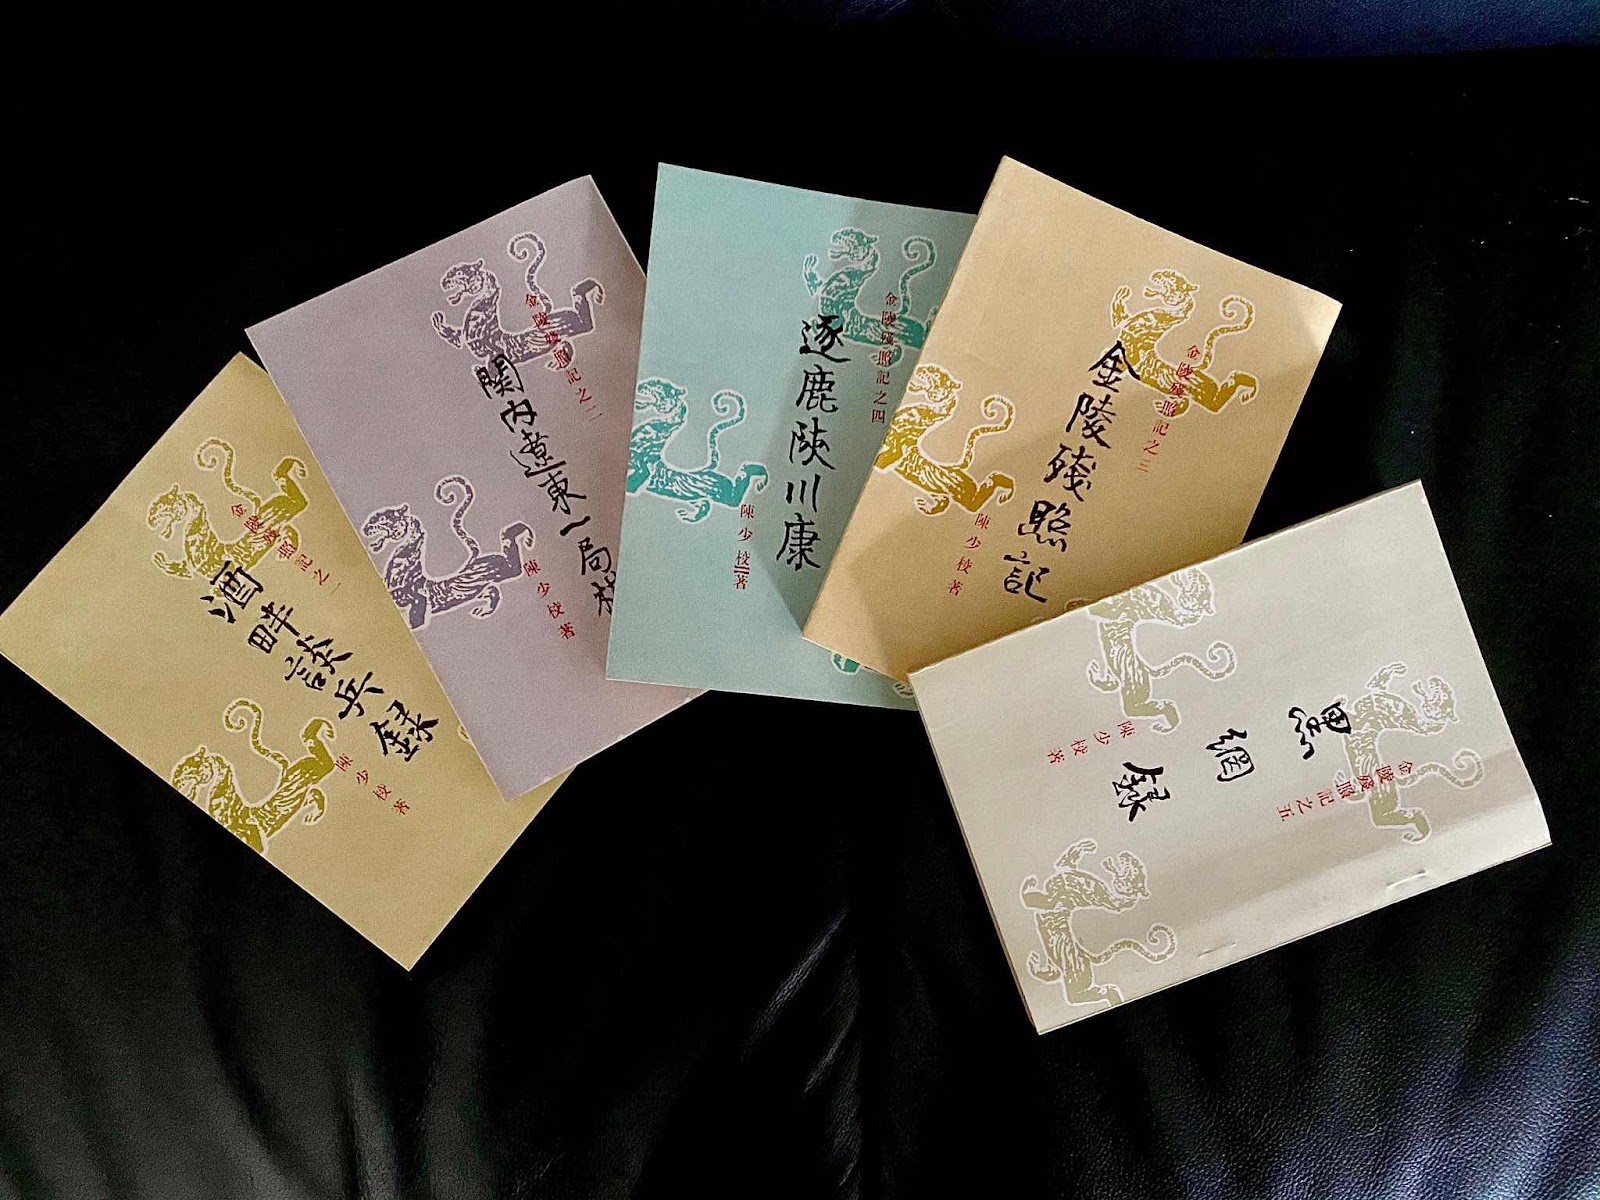 金陵殘照記之一
酒畔談兵錄
陳少校著
金陵殘照記之二
関內遼東一局
陳少校著
金陵殘照記之四
逐鹿陝川康
陳少校著
金陵殘照記之三
金陵殘照記
陳少校著
金陵殘照記之五
黑網錄
陳少校著